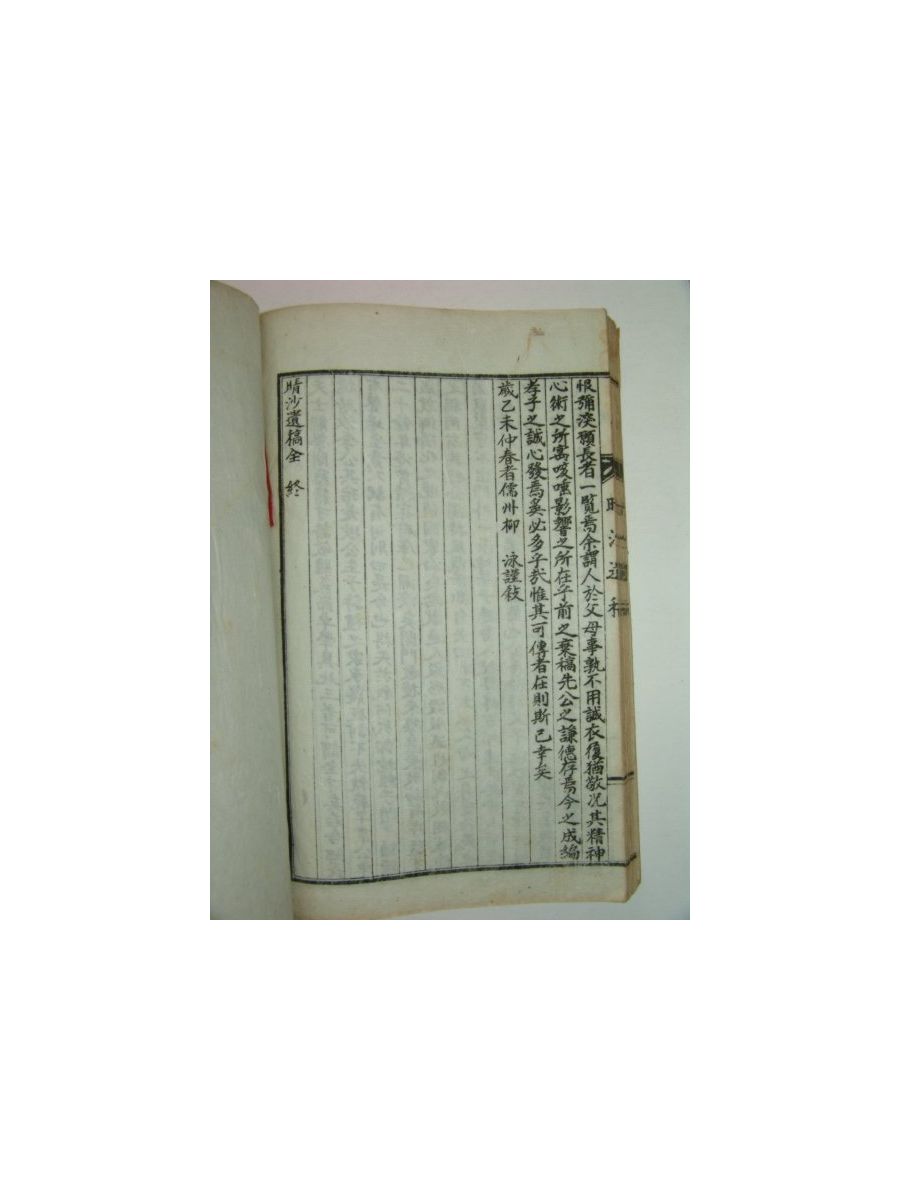 恨弥深願長者一覧焉余謂人於父母事孰不用誠衣履猶敬况其精神
心術之所寓咳唾影響之所在乎前之棄稿先公之謙德存焉今之成編
孝子之誠心發焉奚必多乎哉惟其可傳者在則斯已幸矣
歲乙未仲春者儒州柳 泳謹敍
晴沙遺稿全 終